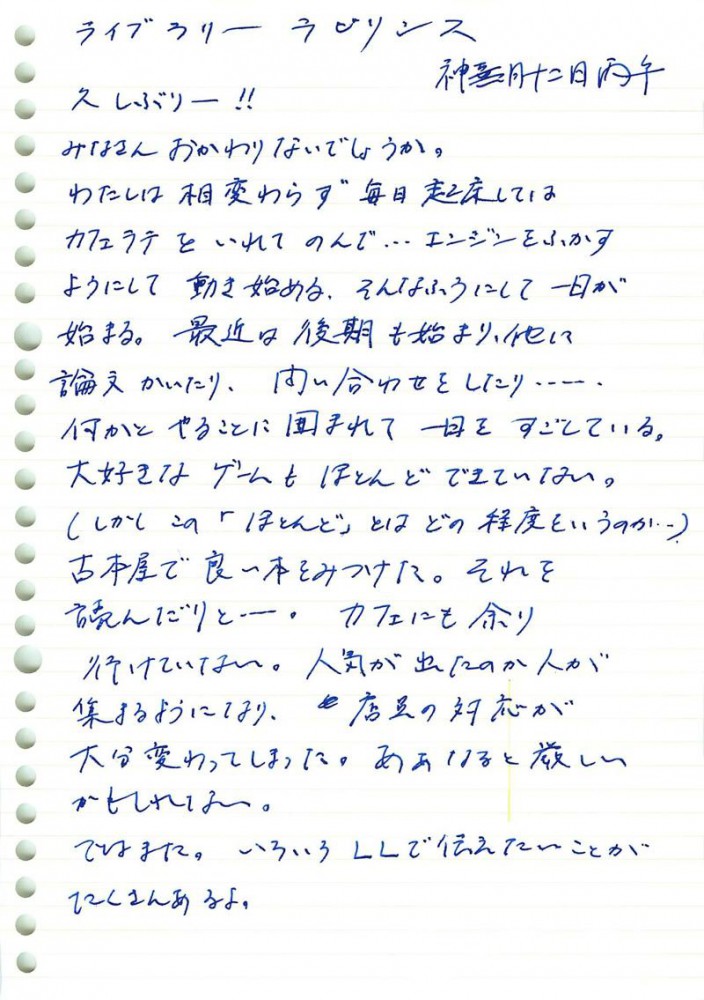 ライブラリー ラビリンス
神無月十二日丙午
久しぶりー!!
みなさん おかわりないでしょうか。
わたしは 相変わらず 毎日 起床しては
カフェラテを いれて のんで… エンジンをふかす
ようにして 動き始める、そんなふうにして 一日が
始まる。最近は 後期も始まり、他に
論文 かいたり、問い合わせをしたり……
何かと やることに 囲まれて 一日を すごしている。
大好きな ゲームも ほとんど できていない。
(しかし この「ほとんど」とは どの 程度をいうのか…)
古本屋で 良い本をみつけた。それを
読んだりと…。カフェにも 余り
行けていない。人気が出たのか 人が
集まるようになり、店員の対応が
大分変わってしまった。ああなると 厳しい
かもしれない。
ではまた。いろいろ LLで伝えたいことが
たくさんあるよ。